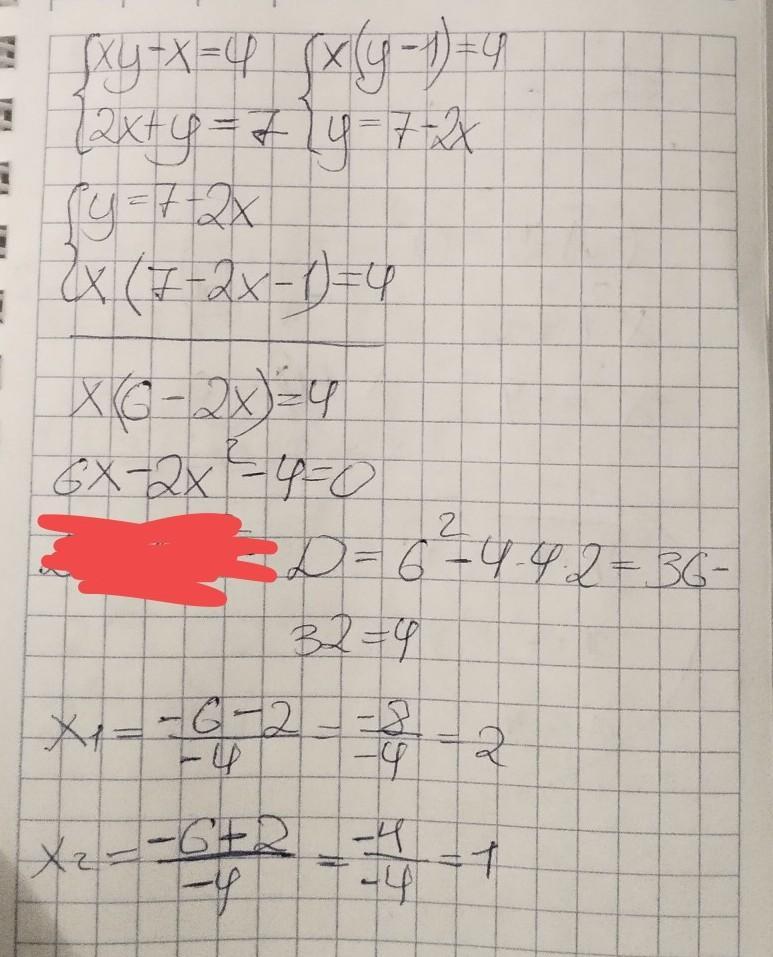 {xy-x=4 {x(y-1)=4
{2x+y=7 {y=7-2x
{y=7-2x
{x(7-2x-1)=4
x(6-2x)=4
6x-2x²-4=0
D=6²-4·4·2=36-
32=4
x₁=(-6-2)/(-4)=(-8)/(-4)=2
x₂=(-6+2)/(-4)=(-4)/(-4)=1